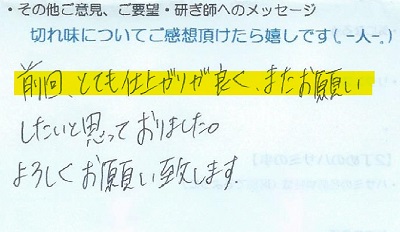 ・その他ご意見、ご要望・研ぎ師へのメッセージ
切れ味についてご感想頂けたら嬉しです(_-人-_)
前回、とても仕上がりが良く、またお願い
したいと思っておりました。
よろしくお願い致します。